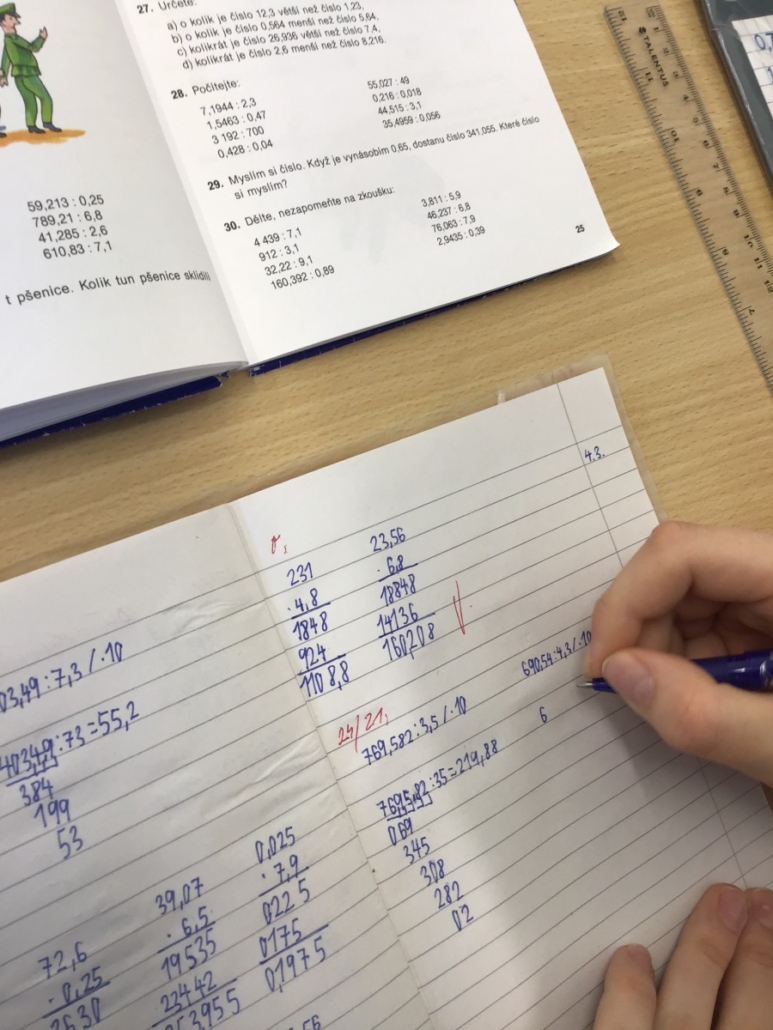 27. Určete:
a) o kolik je číslo 12,3 větší než číslo 1,23,
b) o kolik je číslo 0,564 menší než číslo 5,64,
c) kolikrát je číslo 26,936 větší než číslo 7,4,
d) kolikrát je číslo 2,6 menší než číslo 8,216.
28. Počítejte:
7,1944 : 2,3
1,5463 : 0,47
3 192 : 700
0,428 : 0,04
55,027 : 49
0,216 : 0,018
44,515 : 3,1
35,4959 : 0,056
29. Myslím si číslo. Když je vynásobím 0,65, dostanu číslo 341,055. Které číslo
si myslím?
30. Dělte, nezapomeňte na zkoušku:
4 439 : 7,1
912 : 3,1
32,22 : 9,1
160,392 : 0,89
3,811 : 5,9
46,237 : 6,8
76,063 : 7,9
2,9435 : 0,39
25
59,213 : 0,25
789,21 : 6,8
41,285 : 2,6
610,83 : 7,1
t pšenice. Kolik tun pšenice sklidili
TALENTUS
4.3.
231
. 4,8
1848
924
1108,8
23,56
. 6,8
18848
14136
160208
03,49:7,3 /.10
40349:73=55,2
384
199
53
24/21,
769,582:3,5 /.10
7695,82:35=219,88
069
345
308
282
02
690,54:4,3 /.10
6
72,6
. 0,25
3630
39,07
. 6,5
19535
23442
253955
0,025
. 7,9
0225
0175
0,1975